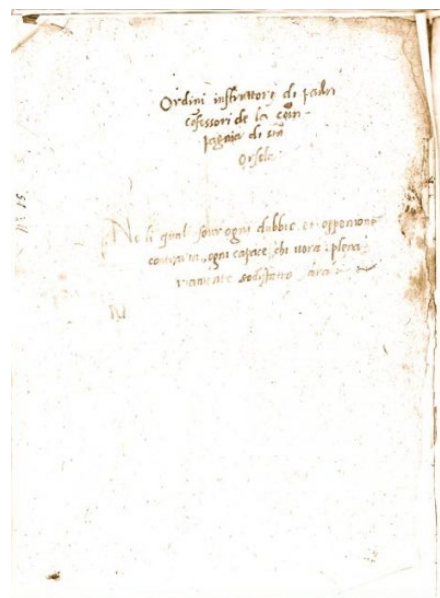 Ordini instruttorij di padri
cõfessori de la com-
pagnia di sta
Orsola
Ne li quai sour ogni dubbio, et oppositione
contraria, ogni capace, chi uora, plena-
riamente sodisfatto sara
Nº 15